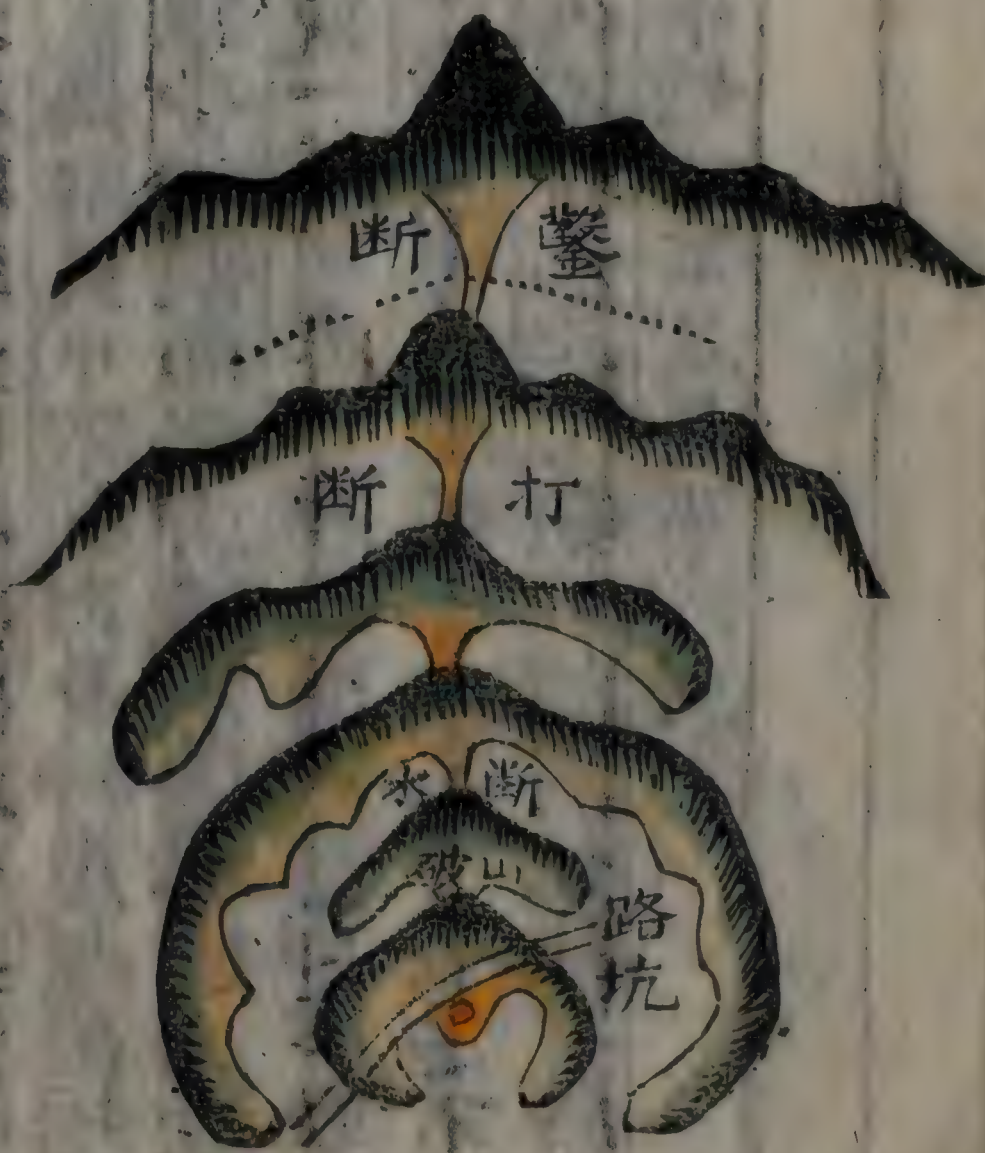 鑿断
打断
断水
山破
路坑